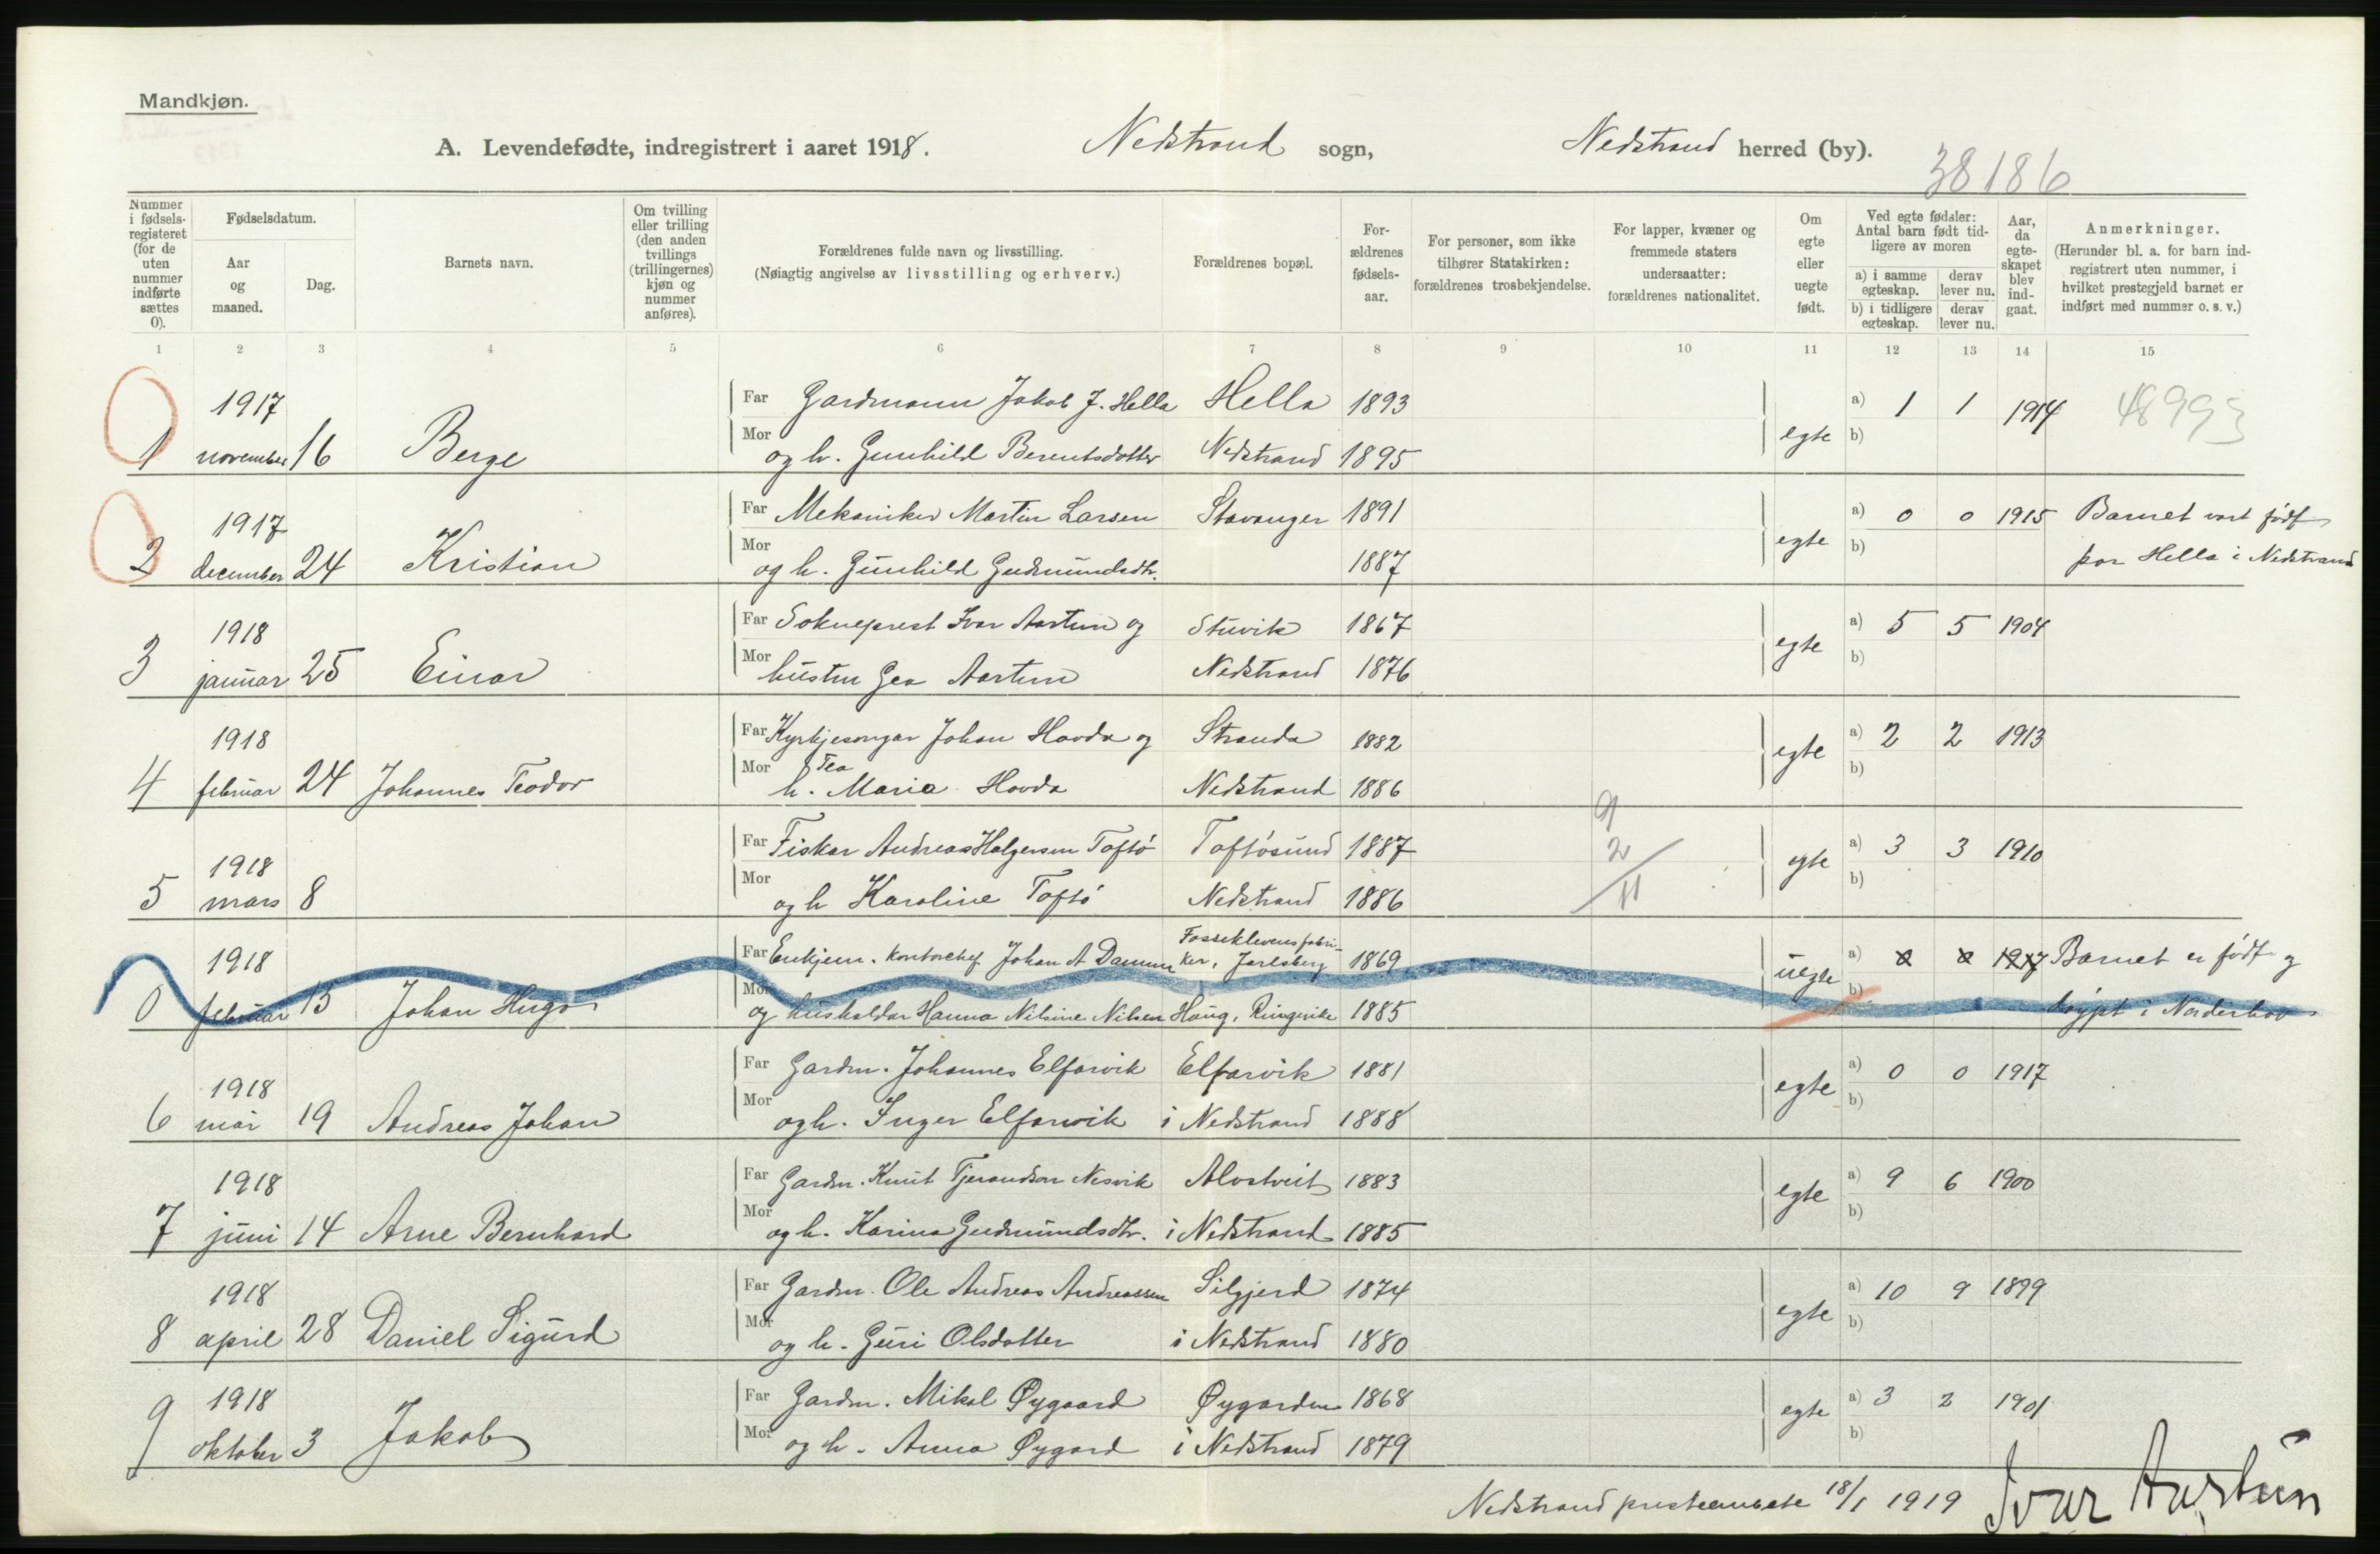 Mandkjøn.
A. Levendefødte, indregistrert i aaret 1918. Nedstrand sogn, Nedstrand herred (by).
38186
Nummer i fødsels-registeret (for de uten nummer indførte sættes 0).
Fødselsdatum.
Aar og maaned.
Dag.
Barnets navn.
Om tvilling eller trilling (den anden tvillings (trillingernes) kjøn og nummer anføres).
Forældrenes fulde navn og livsstilling.
(Nøiagtig angivelse av livsstilling og erhverv.)
Forældrenes bopæl.
For-ældrenes fødsels-aar.
For personer, som ikke tilhører Statskirken: forældrenes trosbekjendelse.
For lapper, kvæner og fremmede staters undersaatter: forældrenes nationalitet.
Om egte eller uegte født.
Ved egte fødsler: Antal barn født tid-ligere av moren
a) i samme egteskap.
derav lever nu.
b) i tidligere egteskap.
derav lever nu.
Aar, da egte-skapet blev ind-gaat.
Anmerkninger.
(Herunder bl. a. for barn ind-registrert uten nummer, i hvilket prestegjeld barnet er indført med nummer o. s. v.)
1 2 3 4 5 6 7 8 9 10 11 12 13 14 15
1917 Far Gardmann Jakob J. Hella Hella 1893 a) 1 1 1914 48993
1 november 16 Berge Mor og h. Gunhild Berentsdotter Nedstrand 1895 egte b)
1917 Far Mekaniker Martin Larsen Stavanger 1891 a) 0 0 1915 Barnet vart födt
2 december 24 Kristian Mor og h. Gunhild Gudmundsdtr. 1887 egte b) paa Hella i Nedstrand
1918 Far Sokneprest Ivar Aartun og Stuvik 1867 a) 5 5 1904
3 januar 25 Einar Mor hustru Gea Aartun Nedstrand 1876 egte b)
1918 Far Kyrkjesongar Johan Hovda og Stranda 1882 a) 2 2 1913
4 februar 24 Johannes Teodor Mor h. Tea Maria Hovda Nedstrand 1886 egte b)
9
2
11
1918 Far Fiskar Andreas Helgersen Toftö Toftösund 1887 a) 3 3 1910
5 mars 8 Mor og h Karoline Toftö Nedstrand 1886 egte b)
1918 Far Enkjem. kontorchef Johan A Damm Fosseklevens fabri-ker, Jarlsberg 1869 a) 1917 Barnet er födt og
0 februar 15 Johan Hugo Mor og husholdar Hanna Nilsine Nilsen Haug, Ringerike 1885 uegte b) döypt i Norderhov
1918 Far Gardm. Johannes Elfarvik Elfarvik 1881 a) 0 0 1917
6 mai 19 Andreas Johan Mor og h. Inger Elfarvik i Nedstrand 1888 egte b)
1918 Far Gardm. Knut Tjerandson Nesvik Alvstveit 1883 a) 9 6 1900
7 juni 14 Arne Bernhard Mor og h. Karina Gudmundsdtr. i Nedstrand 1885 egte b)
1918 Far Gardm. Ole Andreas Andreassen Silgjerd 1874 a) 10 9 1899
8 april 28 Daniel Sigurd Mor og h. Guri Olsdotter i Nedstrand 1880 egte b)
1918 Far Gardm. Mikal Øygaard Øygarden 1868 a) 3 2 1901
9 oktober 3 Jakob Mor og h. Anna Øygard i Nedstrand 1879 egte b)
Nedstrand presteembete 18/1 1919 Ivar Aartun